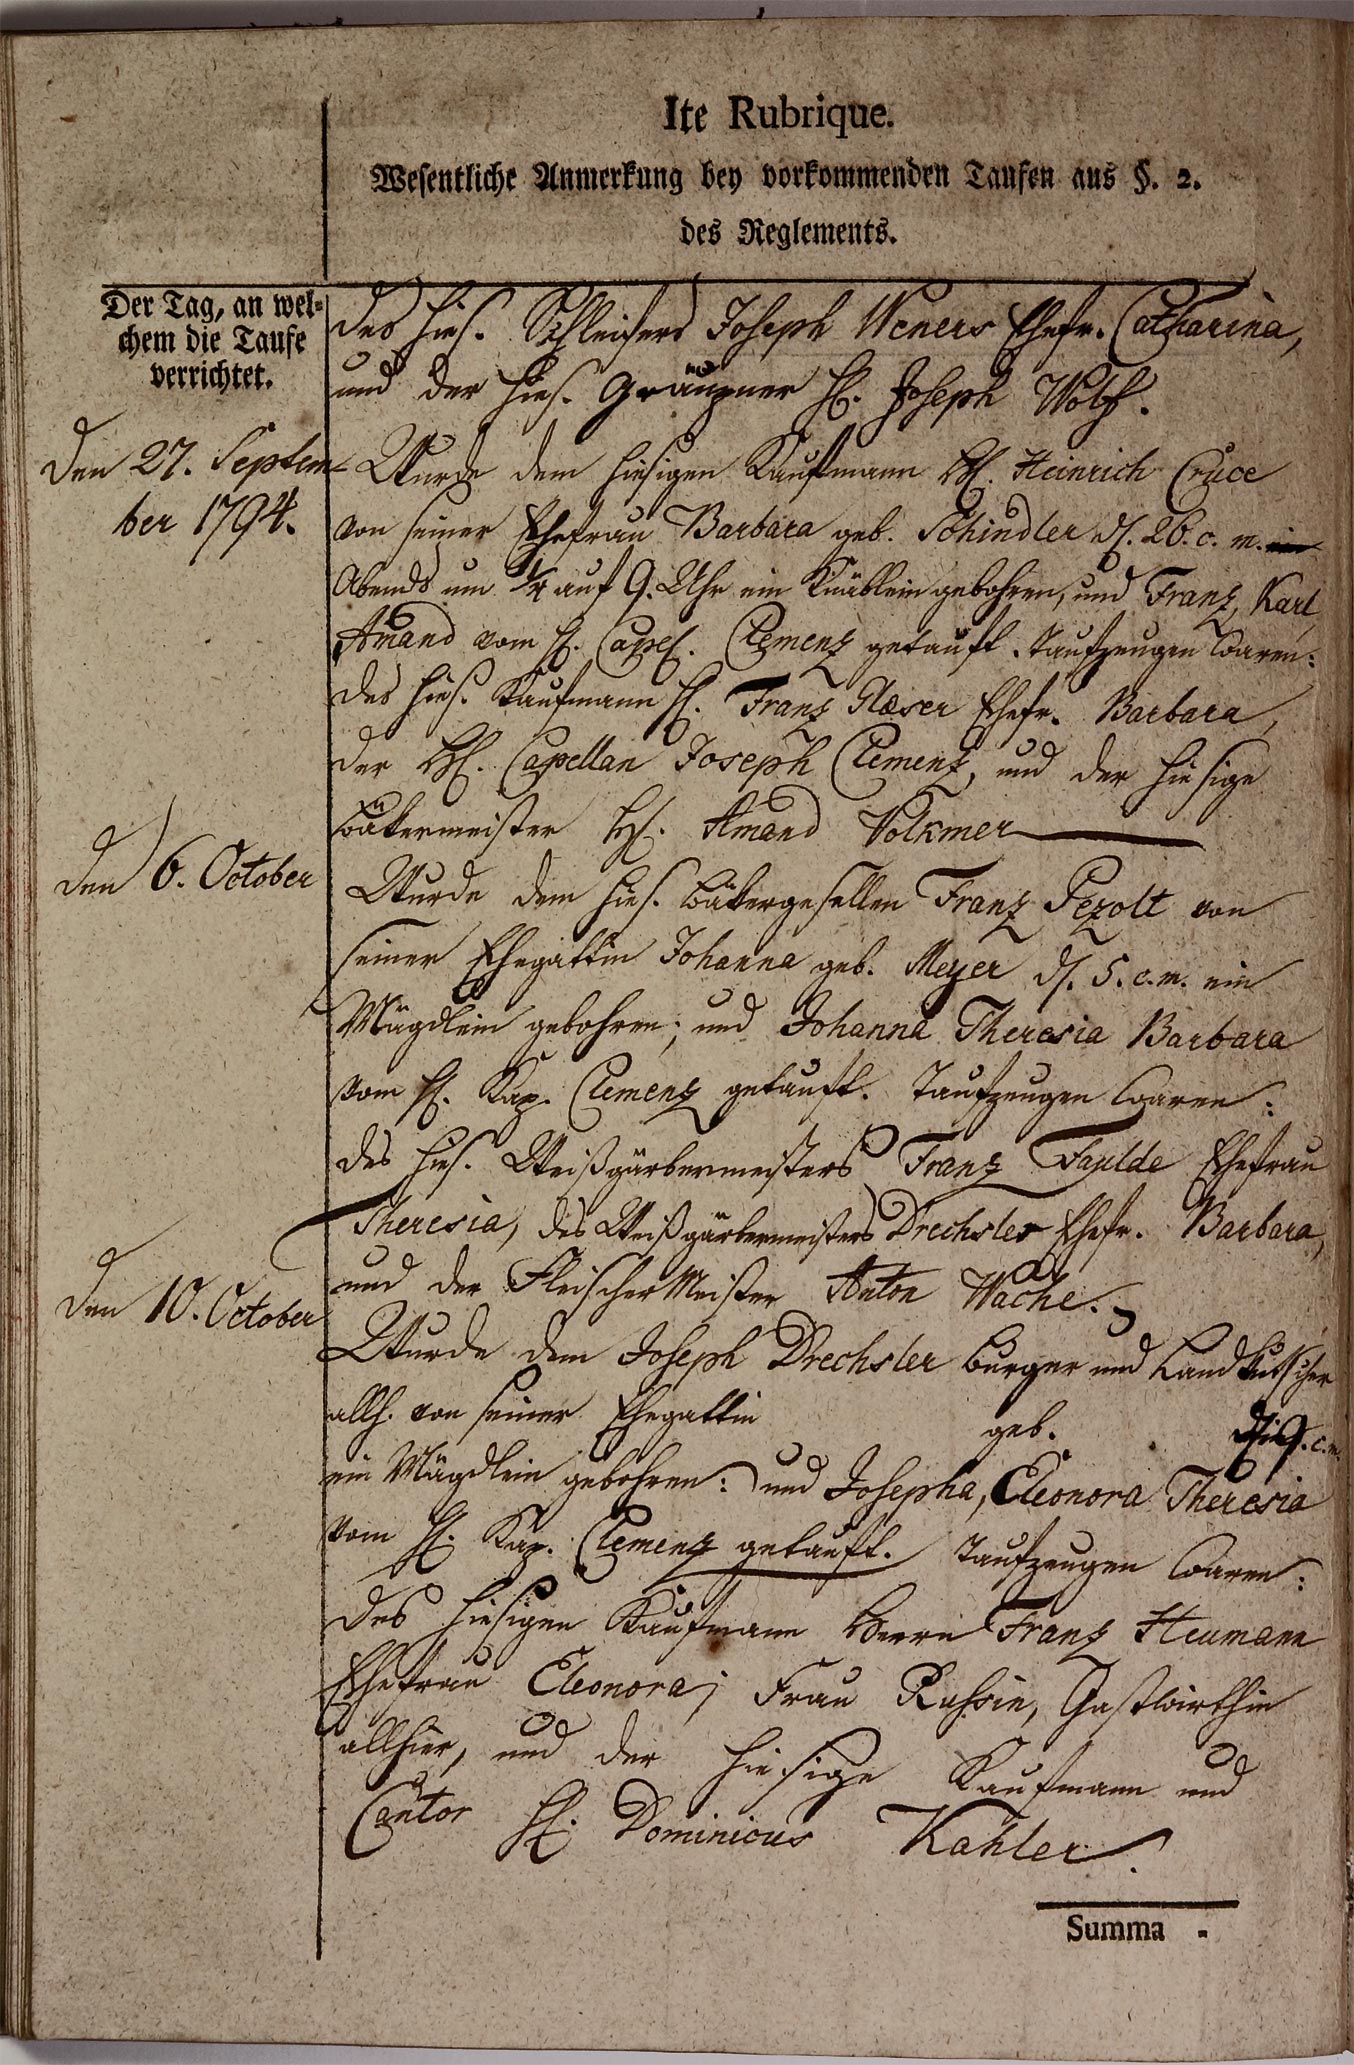 Ite Rubrique.
Wesentliche Anmerkung bey vorkommenden Taufen aus §. 2.
des Reglements.
Der Tag, an wel-
chem die Taufe
verrichtet.
des hies. Schleifers Joseph Weners Ehefr. Catharina,
und der hies. Gräupner H. Joseph Wolf.
Den 27. Septem-
ber 1794.
Wurde dem hiesigen Kaufmann H. Heinrich Cruce
von seiner Ehefrau Barbara geb. Schindler d. 26. c. m.
Abends um 1/4 auf 9. Uhr ein Knäblein gebohren, und Franz, Karl
Amand vom H. Capel. Clemenz getauft. Taufzeugen waren:
des hies. Kaufmann H. Franz Glæser Ehefr. Barbara,
der H. Capellan Joseph Clemenz, und der hiesige
Bäkermeister H. Amand Volkmer
Den 6. October
Wurde dem hies. Bäkergesellen Franz Pezolt von
seiner Ehegattin Johanna geb. Meyer d. 5. c. m. ein
Mägdlein gebohren; und Johanna Theresia Barbara
vom H. Kap. Clemenz getauft. Taufzeugen waren:
des hies. Weißgärbermeisters Franz Ehefrau
Theresia, des Weißgärbermeisters Drechsler Ehefr. Barbara,
und der Fleischer Meister Anton Wache.
Den 10. October
Wurde dem Joseph Drechsler Burger und Landkutscher
allh. von seiner Ehegattin geb. 9. c. m.
ein Mägdlein gebohren: und Josepha, Eleonora Theresia
vom H. Kap. Clemenz getauft. Taufzeugen waren:
des hiesigen Kaufmann Herrn Franz Heumann
Ehefrau Eleonora; Frau Gastwirthin
allhier, und der hiesige Kaufmann und
Cantor H. Dominicus Kahler.
Summa -